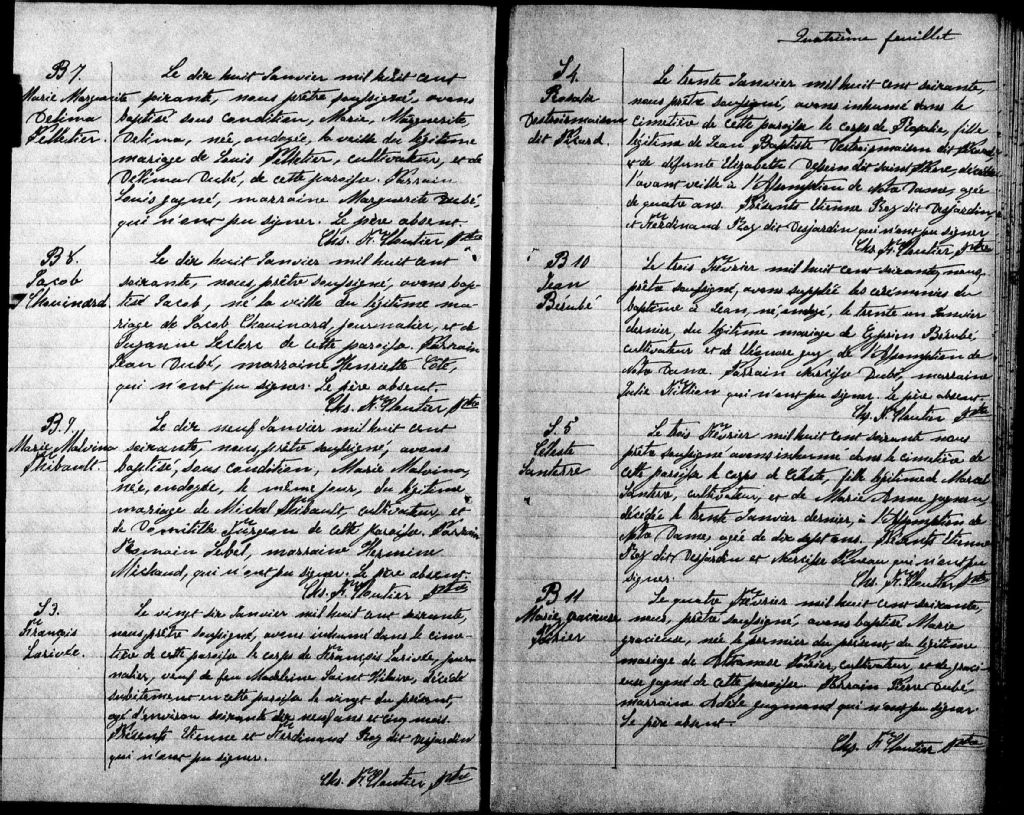 B 7.
Marie Marguerite
Delima
Pelletier.
Le dix huit Janvier mil huit cent
soixante, nous, prêtre soussigné, avons
baptisé sous condition, Marie, Marguerite
Delima, née, ondoyée, la veille du légitime
mariage de Louis Pelletier, cultivateur, et de
Délima Dubé, de cette paroisse. Parrain
Louis gagné, marraine Marguerite Dubé,
qui n'ont pu signer. Le père absent.
Chs. F. Cloutier Ptre
B 8.
Jacob
Chouinard
Le dix huit Janvier mil huit cent
soixante, nous, prêtre soussigné, avons bap-
tisé Jacob, né la veille du légitime ma-
riage de Jacob Chouinard, journalier, et de
Suzanne Leclerc de cette paroisse. Parrain
Jean Dubé, marraine Henriette Côté,
qui n'ont pu signer. Le père absent.
Chs. F. Cloutier Ptre
B. 9.
Marie Malvina
Thibault.
Le dix neuf Janvier mil huit cent
soixante, nous, prêtre soussigné, avons
baptisé, sous condition, Marie Malvina,
née, ondoyée, le même jour, du légitime
mariage de Michel Thibault, cultivateur, et
de Domitille Turgeon de cette paroisse. Parrain
Romain Lebel, marraine Hermine
Michaud, qui n'ont pu signer. Le père absent.
Chs. F. Cloutier Ptre
S 3.
François
Larivée.
Le vingt six Janvier mil huit cent soixante,
nous, prêtre soussigné, avons inhumé dans le cime-
tière de cette paroisse le corps de François Larivée, jour-
nalier, veuf de feu Madeleine Saint Hilaire, décédé
subitement en cette paroisse le vingt du présent,
agé d'environ soixante dix neuf ans et cinq mois.
Présents Etienne et Ferdinand Roy dit Desjardin
qui n'ont pu signer.
Chs. F. Cloutier Ptre
Quatrième feuillet
S 4.
Rosalie
Destroismaisons
dit Picard.
Le trente Janvier mil huit cent soixante,
nous prêtre soussigné, avons inhumé dans le
cimetière de cette paroisse le corps de Rosalie, fille
légitime de Jean Baptiste Destroismaison dit Picard
et de défunte Elizabeth dit Saint Pierre, décédée
l'avant veille à l'Assomption de Notre Dame, agée
de quatre ans. Présents Etienne Roy dit Desjardin
et Ferdinand Roy dit Desjardin qui n'ont pu signer
Chs. F. Cloutier Ptre
B 10
Jean
Bérubé
Le trois Février mil huit cent soixante, nous
prêtre soussigné, avons supplée les cérémonies du
baptême à Jean, né, ondoyé, le trente un Janvier
dernier, du légitime mariage de Cyprien Bérubé
cultivateur et de Eléonore guy de l'Assomption de
Notre Dame. Parrain Narcisse Dubé, marraine
Julie qui n'ont pu signer. Le père absent.
Chs. F. Cloutier Ptre
S. 5
Céleste
Santerre
Le trois Février mil huit cent soixante nous
prêtre soussigné avons inhumé dans le cimetière de
cette paroisse le corps de Céleste, fille légitime de Marcel
Santerre, cultivateur, et de Marie Anne gagnon,
décédée le trente Janvier dernier, à l'Assomption de
Notre Dame, agée de dix sept ans. Présents Etienne
Roy dit Desjardin et Narcisse Pineau qui n'ont pu
signer.
Chs. F. Cloutier Ptre
B 11
Marie gracieuse
Poirier
Le quatre Février mil huit cent soixante,
nous, prêtre soussigné, avons baptisé Marie
gracieuse, née le premier du présent, du légitime
mariage de Athanase Poirier, cultivateur, et de graci-
euse gagné de cette paroisse. Parrain Pierre Dubé,
marraine Adèle gagnon qui n'ont pu signer
Le père absent.
Chs. F. Cloutier Ptre